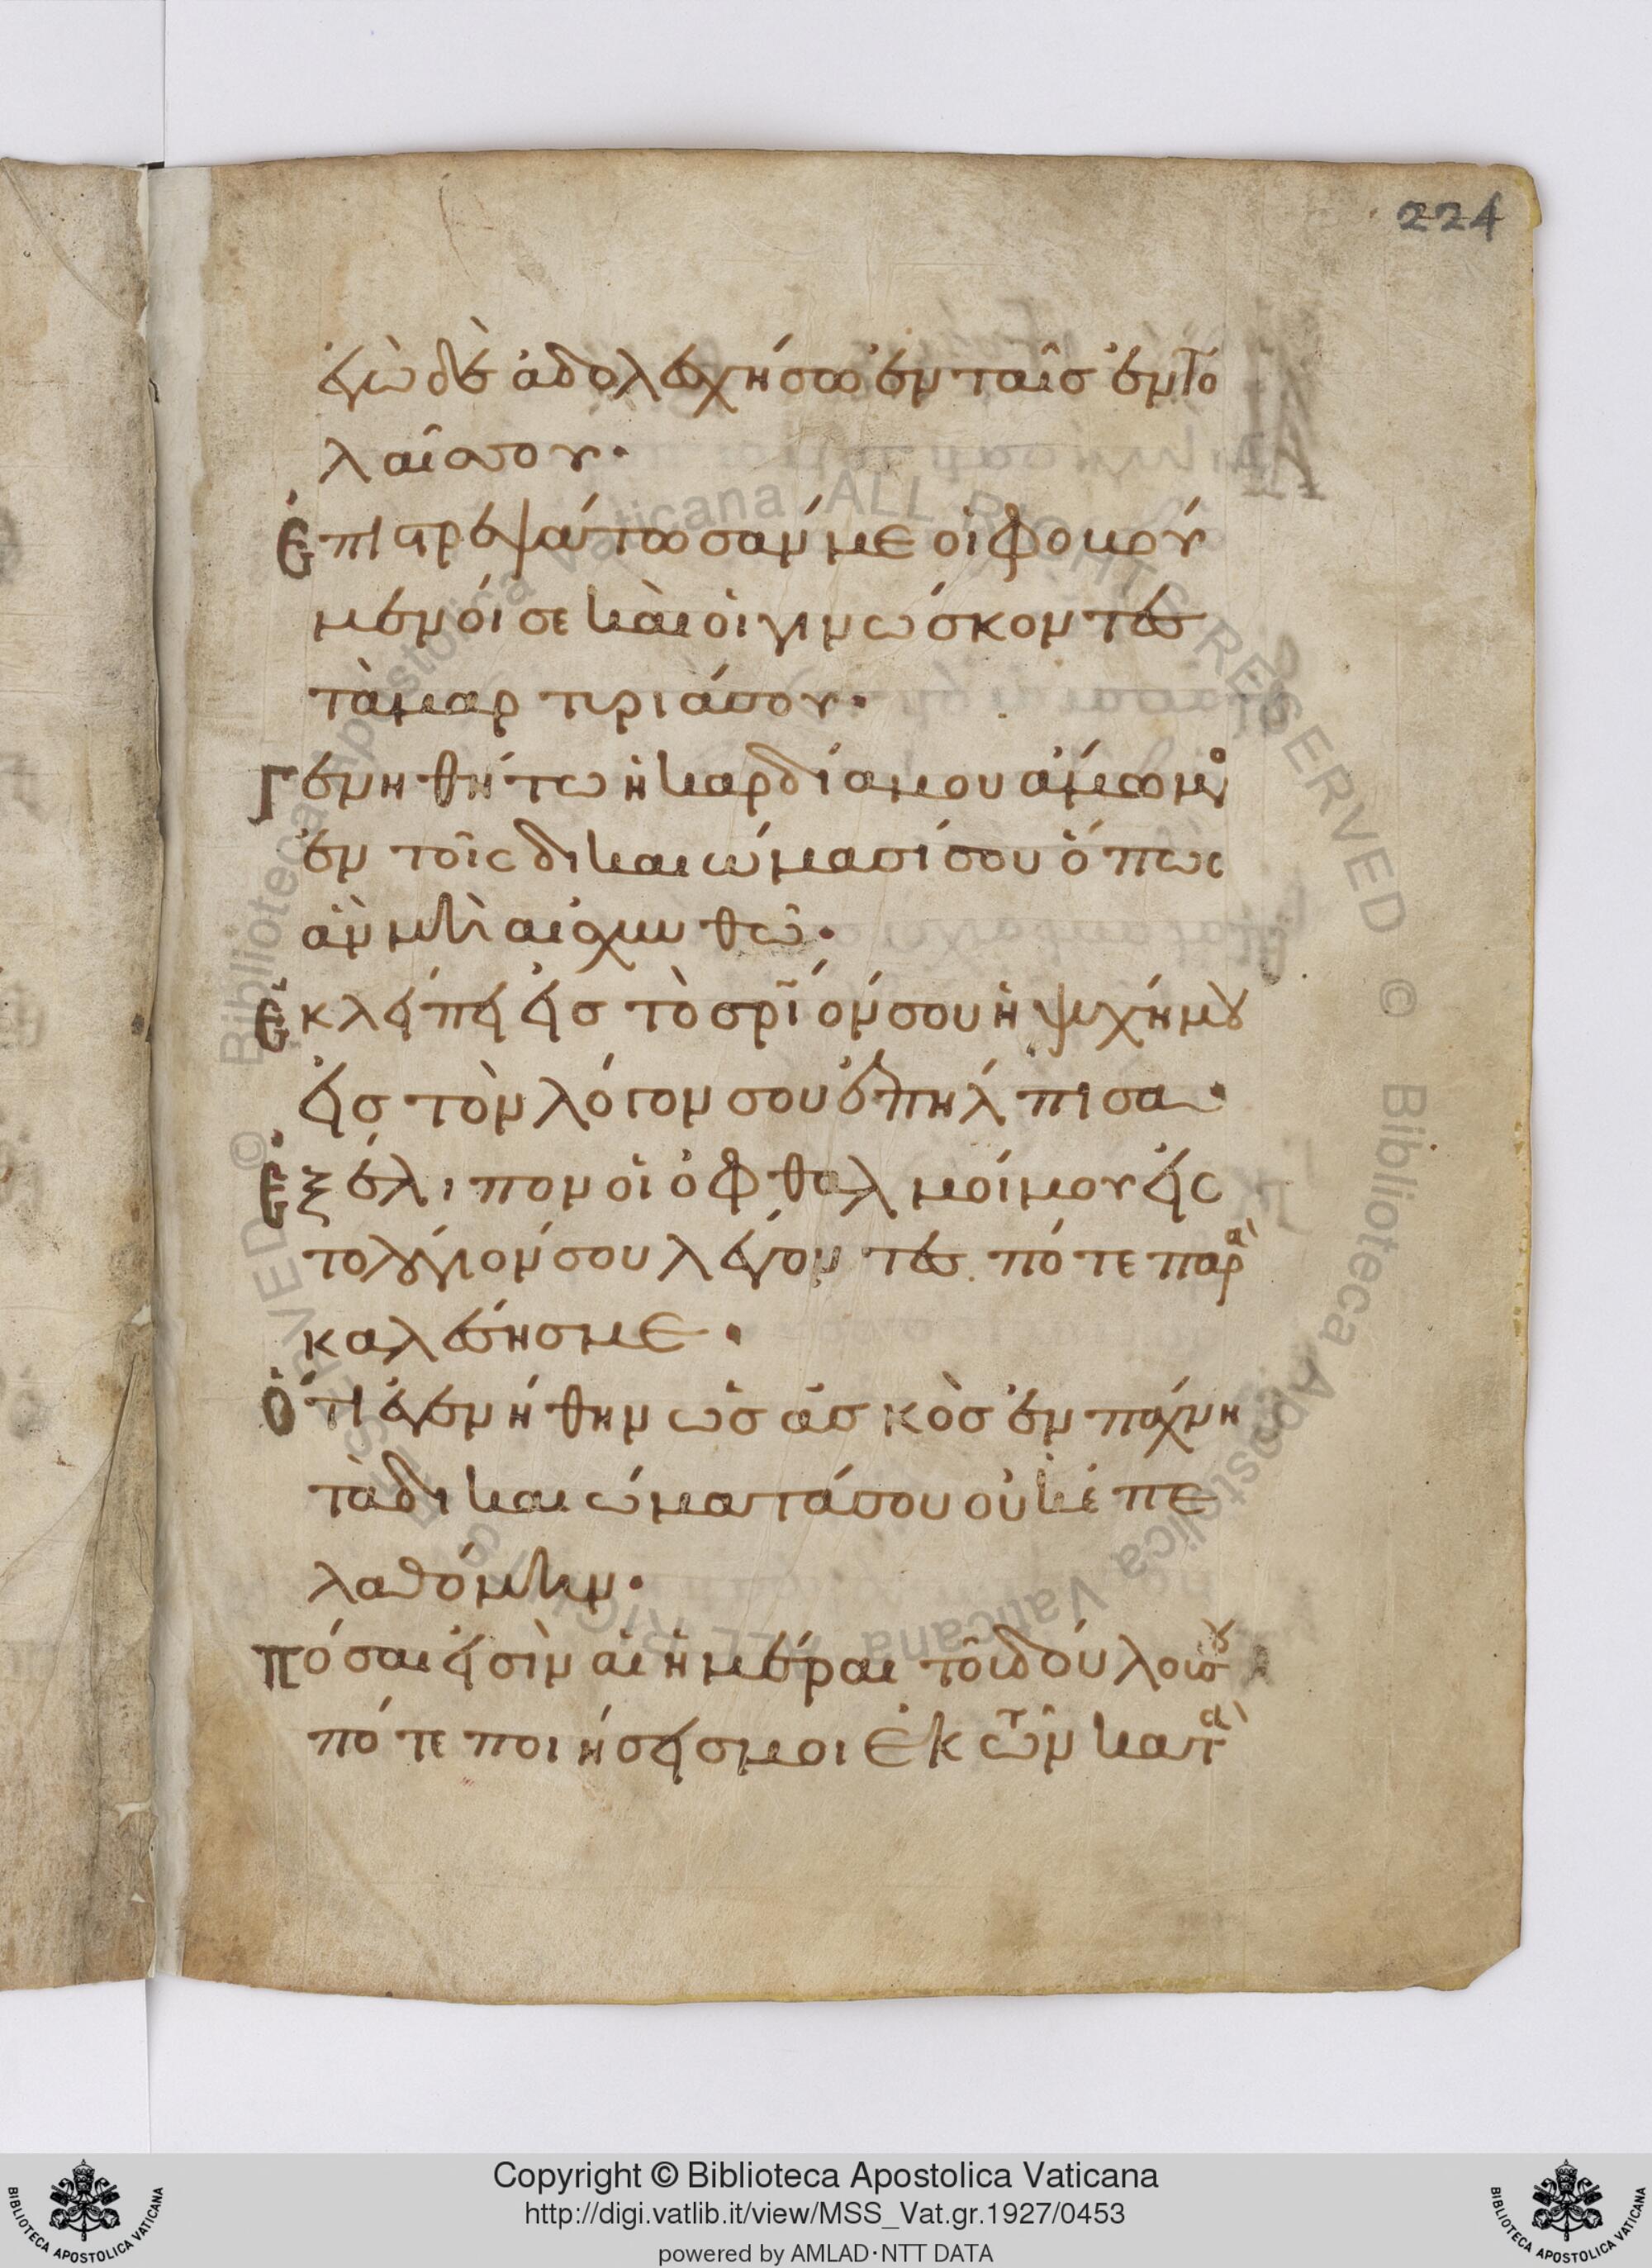 224
ἐγὼ δὲ ἀδολεσχήσω ἐν ταῖσ ἐντο
λαῖσ σου·
Ἐπιστρεψάτωσάν με οἱ φοβού
μενοί σε καὶ οἱ γινώσκοντεσ
τὰ μαρτύριά σου·
Γενηθήτω ἡ καρδία μου ἄμωμος
ἐν τοῖς δικαιώμασί σου ὅπως
ἂν μὴ αἰσχυνθῶ·
Ἐκλείπει εἰσ τὸ σρ̅ιόν σου ἡ ψυχή μου
εἰσ τὸν λόγον σου ἐπήλπισα·
Ἐξέλιπον οἱ ὀφθαλμοί μου εἰς
το λόγιόν σου λέγοντεσ πότε παρα
καλέσησ με·
Ὅτι ἐγενήθην ὡσ ἀσκὸσ ἐν πάχνη
τὰ δικαιώματά σου οὐκ ἐπε
λαθόμην·
Πόσαι εἰσὶν αἱ ἡμέραι τοῦ δούλου σου
πότε ποιήσεισ μοι ἐκ τῶν κατα
Copyright © Biblioteca Apostolica Vaticana
http://digi.vatlib.it/view/MSS_Vat.gr.1927/0453
powered by AMLAD·NTT DATA
BIBLIOTECA APOSTOLICA VATICANA
BIBLIOTECA APOSTOLICA VATICANA
© Biblioteca Apostolica Vaticana ALL RIGHTS RESERVED © Biblioteca Apostolica Vaticana ALL RIGHTS RESERVED